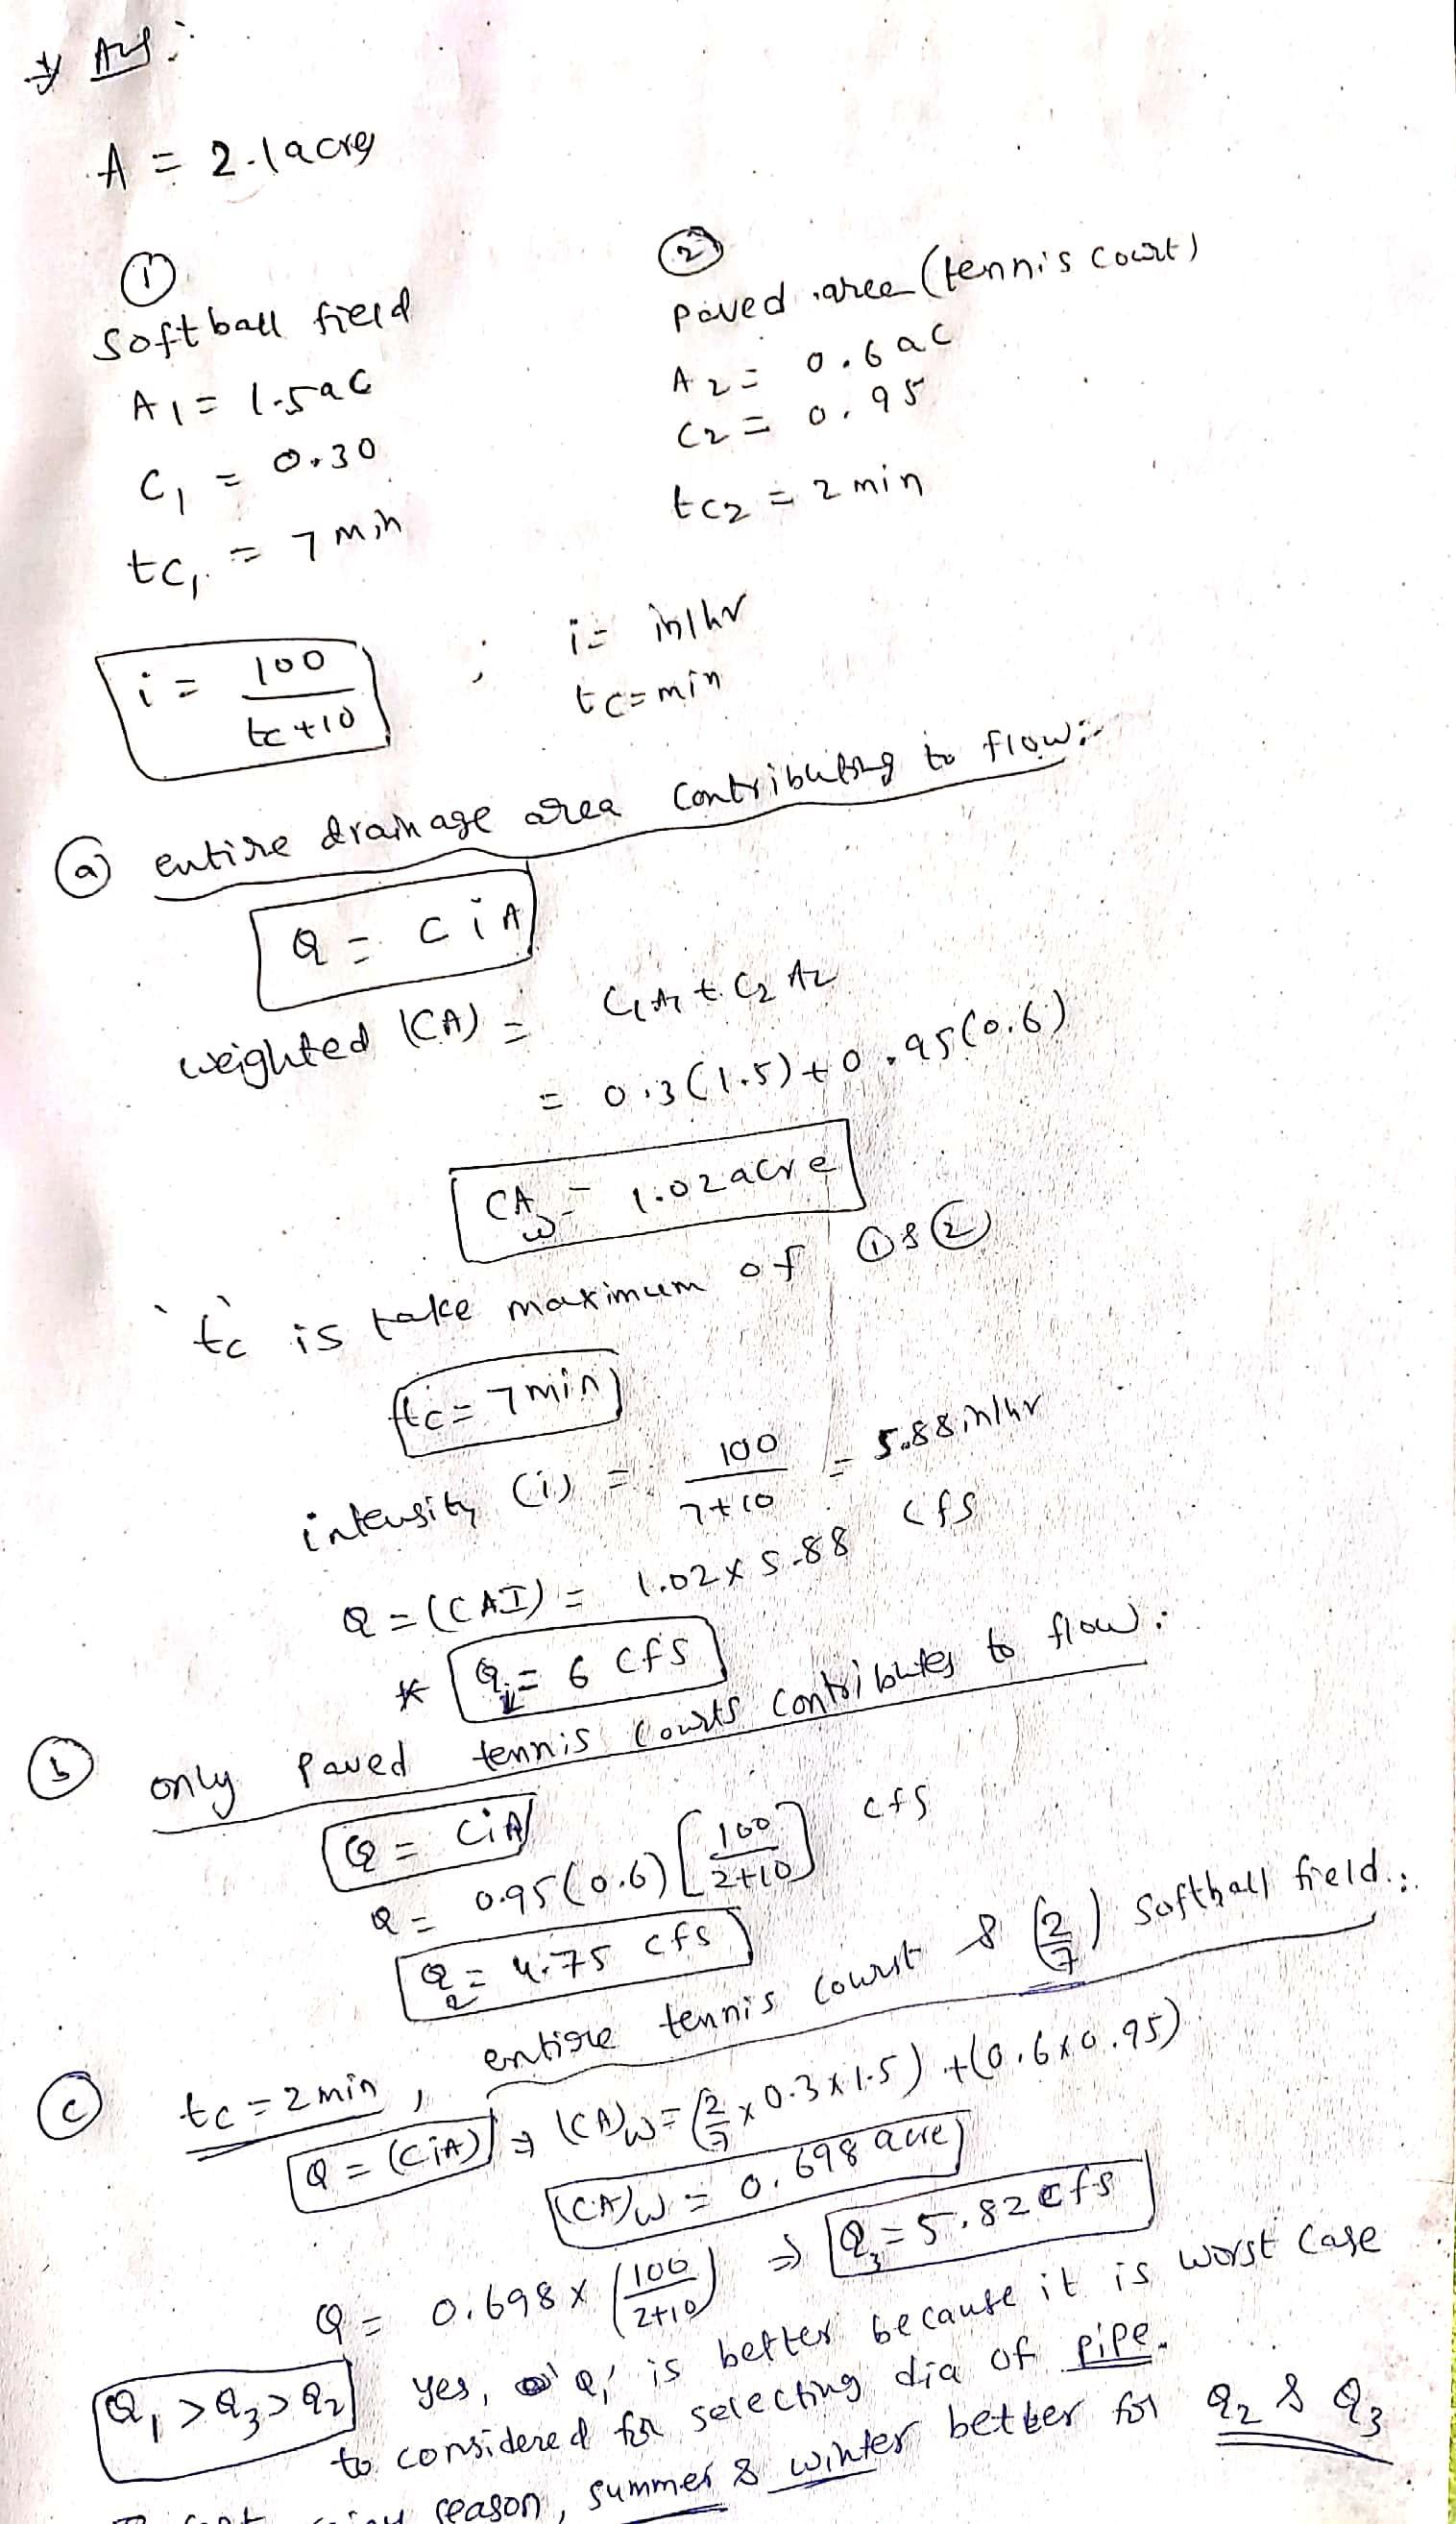 Ans:
A = 2.1 acre
①
softball field
A1 = 1.5ac
C1 = 0.30
tc1 = 7 min
②
paved area (tennis court)
A2 = 0.6ac
C2 = 0.95
tc2 = 2 min
i = 100/(tc+10) ; i = in/hr
tc = min
ⓐ entire drainage area contributing to flow:-
Q = CiA
weighted (CA) = C1A1 + C2A2
= 0.3(1.5)+0.95(0.6)
CAw = 1.02acre
'tc' is take maximum of ① & ②
tc = 7min
intensity (i) = 100/(7+10) = 5.88in/hr
Q = (CAI) = 1.02 x 5.88 cfs
* Q1 = 6 cfs
ⓑ only paved tennis courts contributes to flow:
Q = CiA
Q = 0.95(0.6)[100/(2+10)] cfs
Q2 = 4.75 cfs
ⓒ tc = 2min, entire tennis court & (2/7) softball field:
Q = (CiA) ⇒ (CA)w = (2/7 x 0.3 x 1.5) + (0.6x0.95)
(CA)w = 0.698 acre
Q = 0.698 x (100/(2+10)) ⇒ Q3 = 5.82 cfs
Q1 > Q3 > Q2 yes, 'Q1' is better because it is worst case
to considered for selecting dia of pipe.
season, summer & winter better for Q2 & Q3